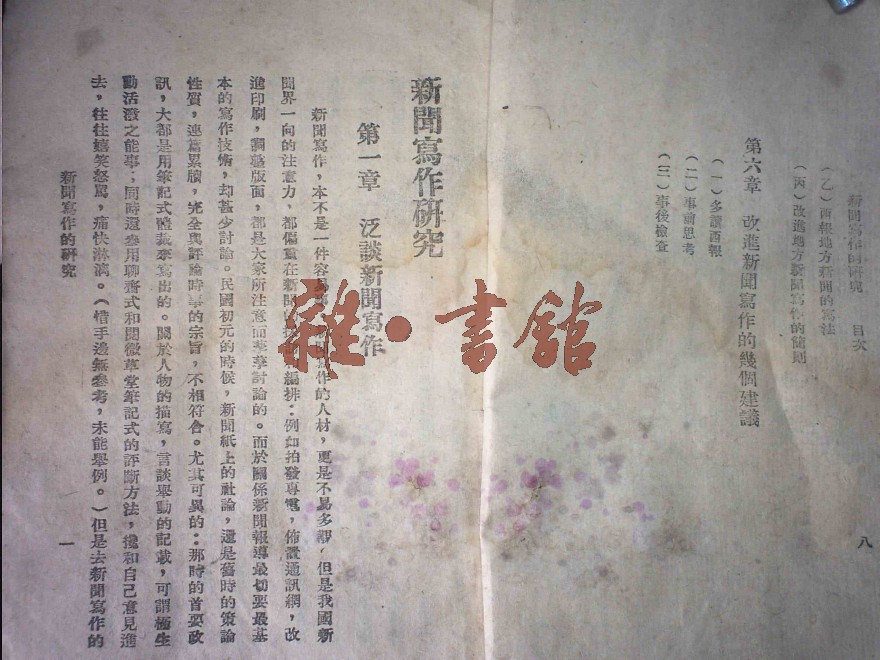 新聞寫作的研究　目次
八
（乙）西報地方新聞的寫法
（丙）改進地方新聞寫作的簡則
第六章　改進新聞寫作的幾個建議
（一）多讀西報
（二）事前思考
（三）事後檢查
新聞寫作研究
第一章　泛談新聞寫作
新聞寫作，本不是一件容易　　寫作的人材，更是不易多　，但是我國新
聞界一向的注意力，都偏重在新聞　　　編排：例如拍發專電，佈置通訊網，改
進印刷，調整版面，都是大家所注意而　　討論的。而於關係新聞報導最切要最基
本的寫作技術，却甚少討論。民國初元的時候，新聞紙上的社論，還是舊時的策論
性質，連篇累牘，完全與評論時事的宗旨，不相符合。尤其可異的：那時的首要政
訊，大都是用筆記式體裁來寫出的。關於人物的描寫，言談舉動的記載，可謂極生
動活潑之能事；同時還參用聊齋式和閱微草堂筆記式的評斷方法，攙和自己意見進
去，往往嬉笑怒罵，痛快淋漓。（惜手邊無參考，未能舉例。）但是去新聞寫作的
新聞寫作的研究
一
雜·書館